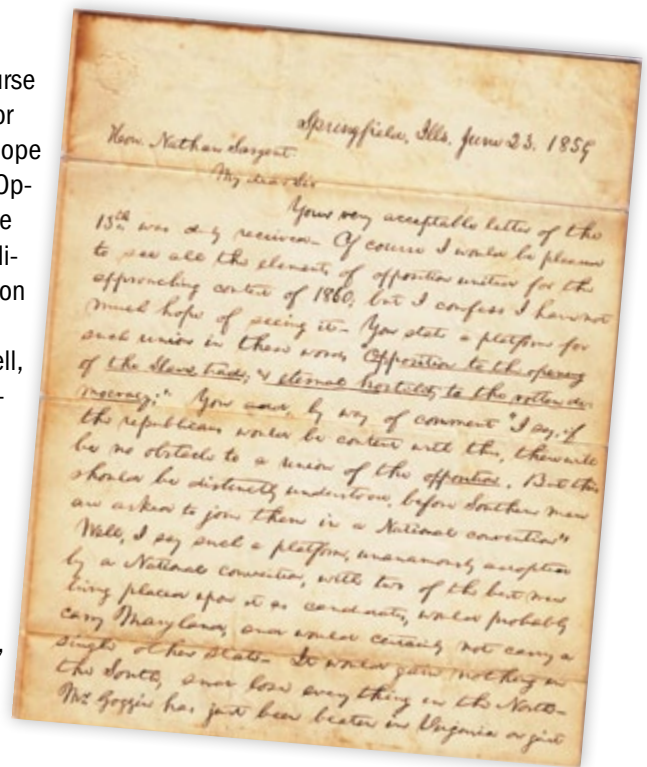 urse
or
ope
Op-
e
li-
on
ell,
-
,
Springfield, Ills. June 23. 1859
Hon. Nathan Sargent.
My dear Sir
Your very acceptable letter of the
13th was duly received. Of course I would be pleased
to see all the elements of opposition united for the
approaching contest of 1860, but I confess I have not
much hope of seeing it. You state a platform for
such union in these words "Opposition to the opening
of the Slave-trade; & eternal hostility to the rotten de-
mocracy." You add, by way of comment "I say, if
the republicans would be content with this, there will
be no obstacle to a union of the opposition. But this
should be distinctly understood, before Southern men
are asked to join them in a National convention"
Well, I say such a platform, unanamously adopted
by a National convention, with two of the best men
living placed upon it as candidates, would probably
carry Maryland, and would certainly not carry a
single other state. It would gain nothing in
the South, and lose every thing in the North.
Mr. Goggin has just been beaten in Virginia on just